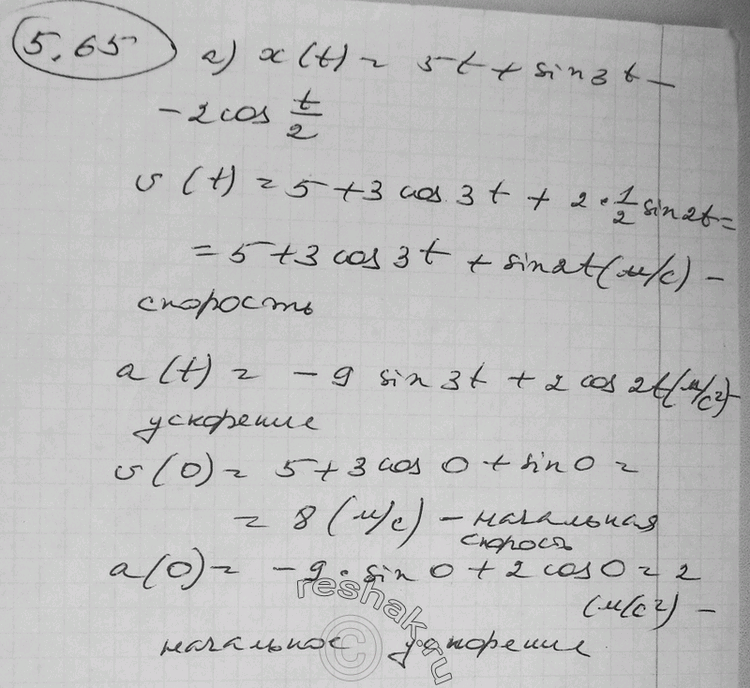 5.65 а) x(t) = 5t + sin3t -
- 2cos t/2
v(t) = 5 + 3 cos 3t + 2 · 1/2 sin2t =
= 5 + 3 cos 3t + sin2t (м/с) -
скорость
a(t) = -9 sin 3t + 2 cos 2t (м/с²) -
ускорение
v(0) = 5 + 3 cos 0 + sin 0 =
= 8 (м/с) - начальная
скорость
a(0) = -9 · sin 0 + 2 cos 0 = 2
(м/с²) -
начальное ускорение
reshak.ru
©